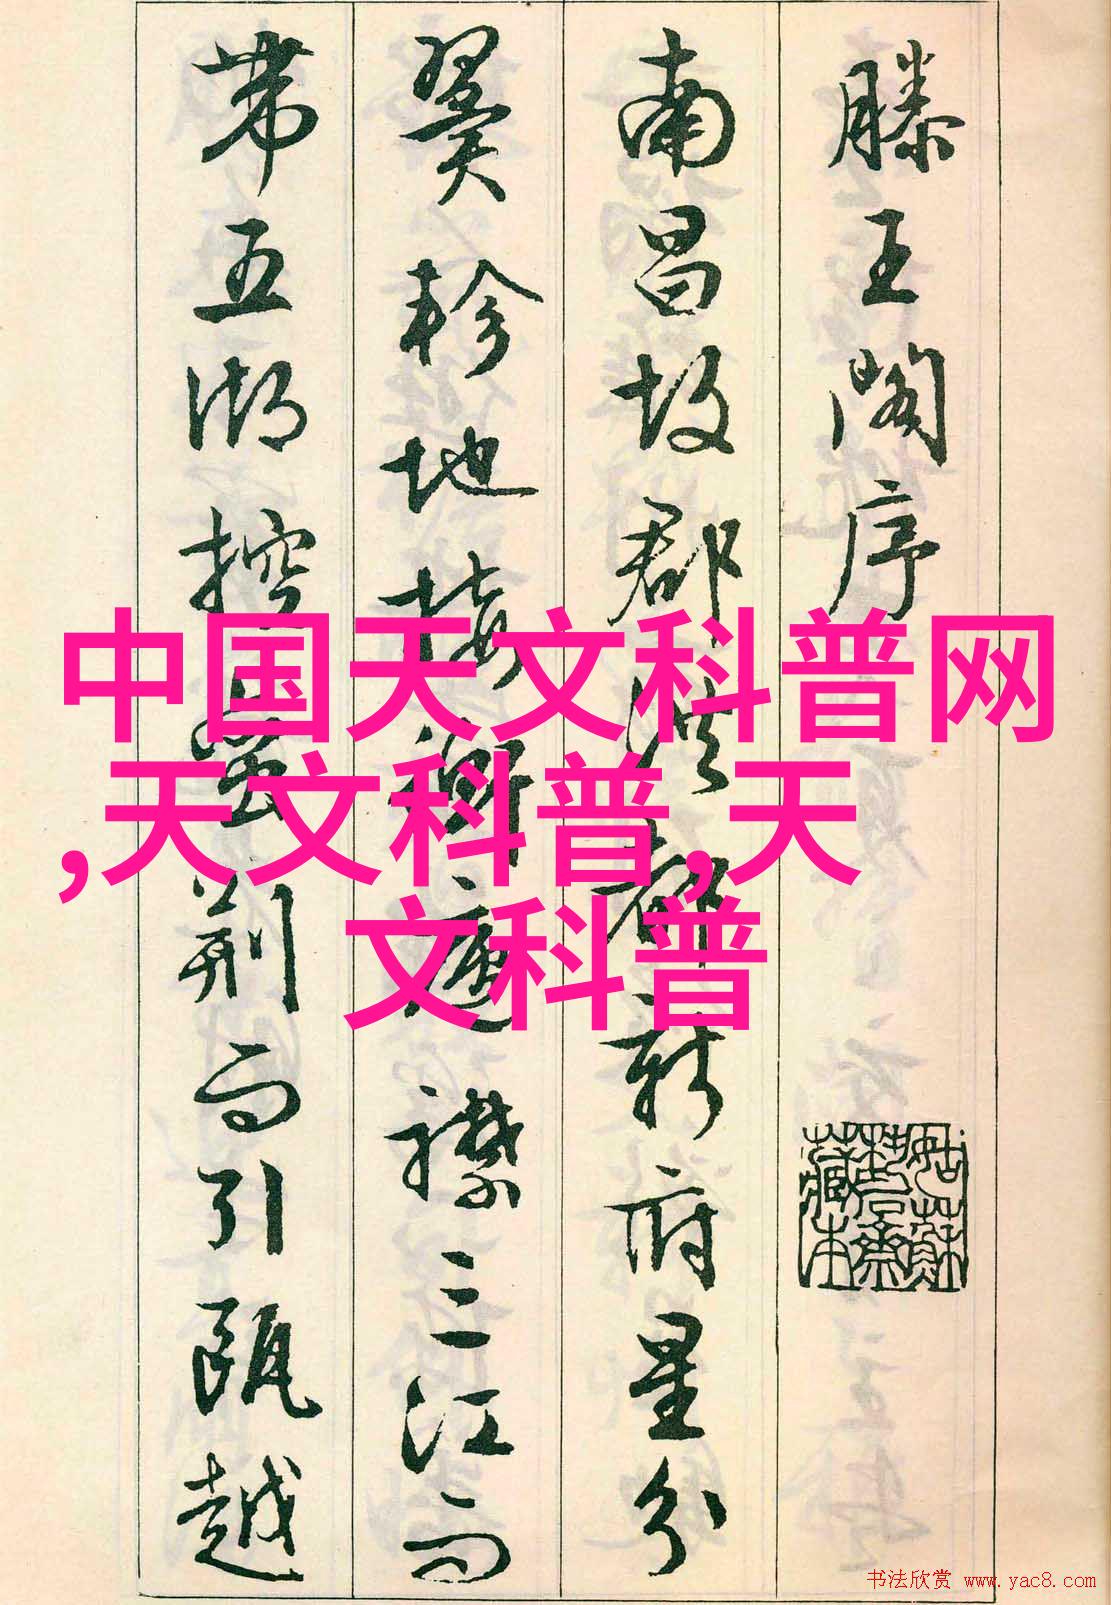 滕王阁序
南昌故郡洪都新府星分
翼轸地接衡庐襟三江而
带五湖控蛮荆而引瓯越
中国天文科普网
,天文科普,天
文科普
书法欣赏 www.yac8.com